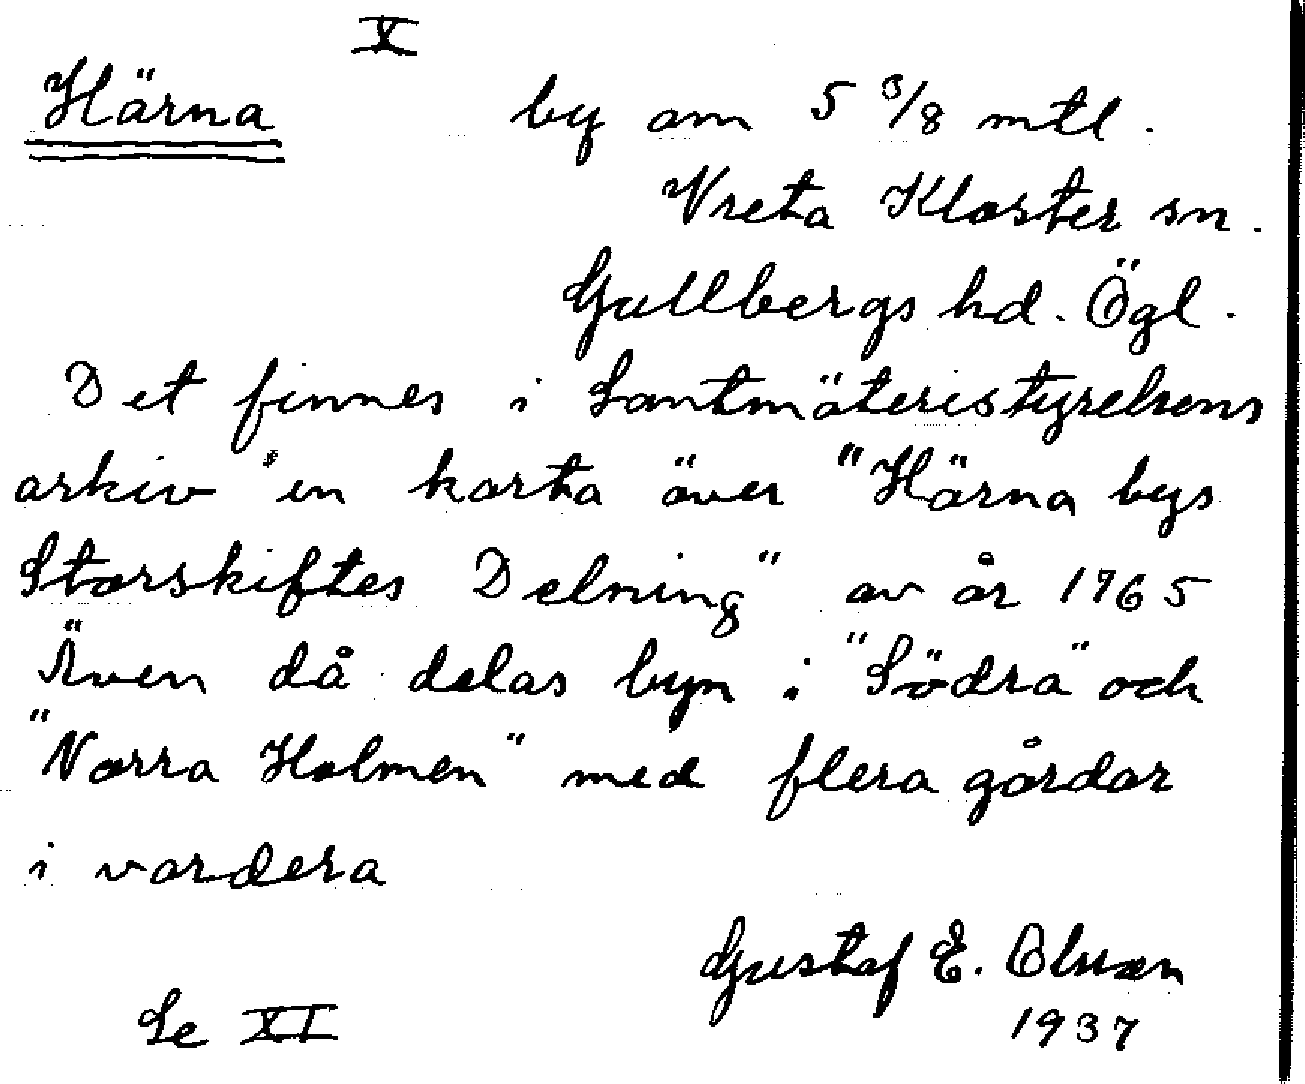 X
Härna by om 5 3/8 mtl.
Vreta Kloster sn.
Gullbergs hd. Ögl.
Det finnes i Lantmäteristyrelsens
arkiv en karta över "Härna bys
Storskiftes Delning" av år 1765
Även då delas byn i "Södra" och
"Norra Holmen" med flera gårdar
i vardera
Gustaf E. Olsson
1937
Se XI